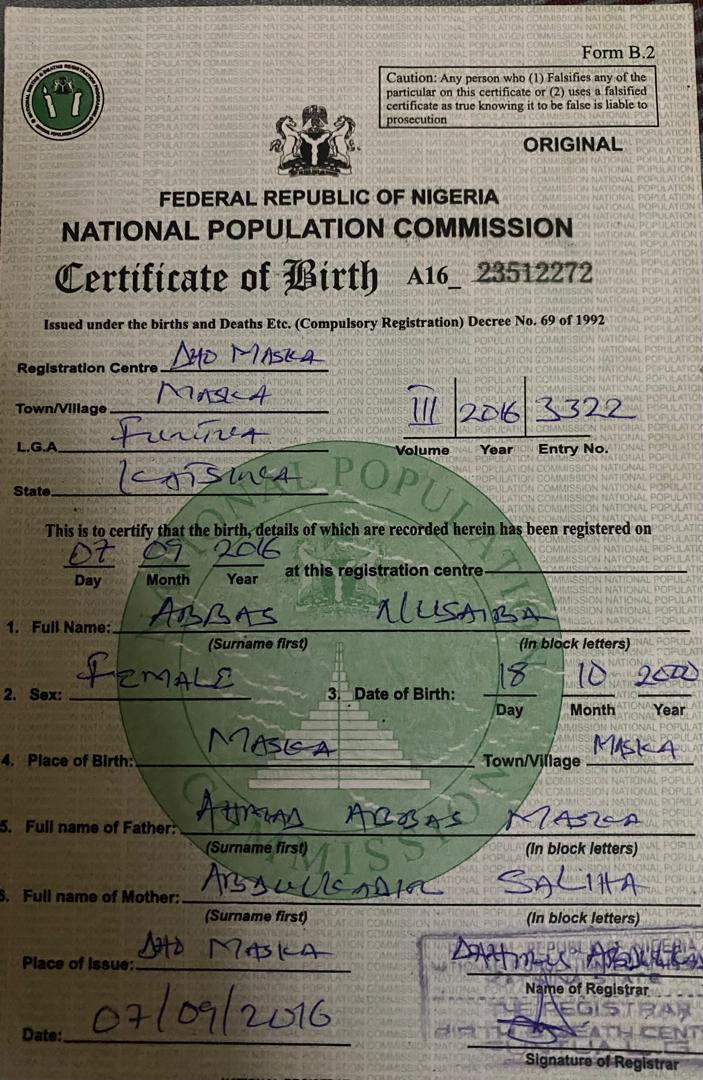 Form B.2
Caution: Any person who (1) Falsifies any of the
particular on this certificate or (2) uses a falsified
certificate as true knowing it to be false is liable to
prosecution
ORIGINAL
FEDERAL REPUBLIC OF NIGERIA
NATIONAL POPULATION COMMISSION
Certificate of Birth A16_ 23512272
Issued under the births and Deaths Etc. (Compulsory Registration) Decree No. 69 of 1992
Registration Centre DHO MASKA
Town/Village MASKA
III 2016 3322
L.G.A FUNTUA
Volume Year Entry No.
State KATSINA
This is to certify that the birth, details of which are recorded herein has been registered on
07 09 2016
Day Month Year at this registration centre
1. Full Name: ABBAS NUSAIBA
(Surname first) (In block letters)
2. Sex: FEMALE 3. Date of Birth: 18 10 2000
Day Month Year
4. Place of Birth: MASKA Town/Village MASKA
5. Full name of Father: AHMAD ABBAS MASKA
(Surname first) (In block letters)
6. Full name of Mother: ABDULKADIR SALIHA
(Surname first) (In block letters)
Place of Issue: DHO MASKA
Name of Registrar
Date: 07/09/2016
Signature of Registrar